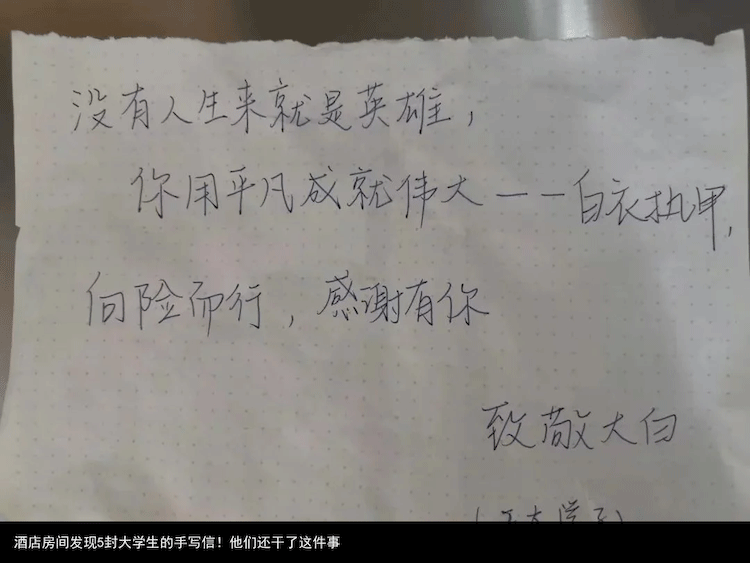 没有人生来就是英雄，
你用平凡成就伟大——白衣执甲，
向险而行，感谢有你
致敬大白
酒店房间发现5封大学生的手写信！他们还干了这件事